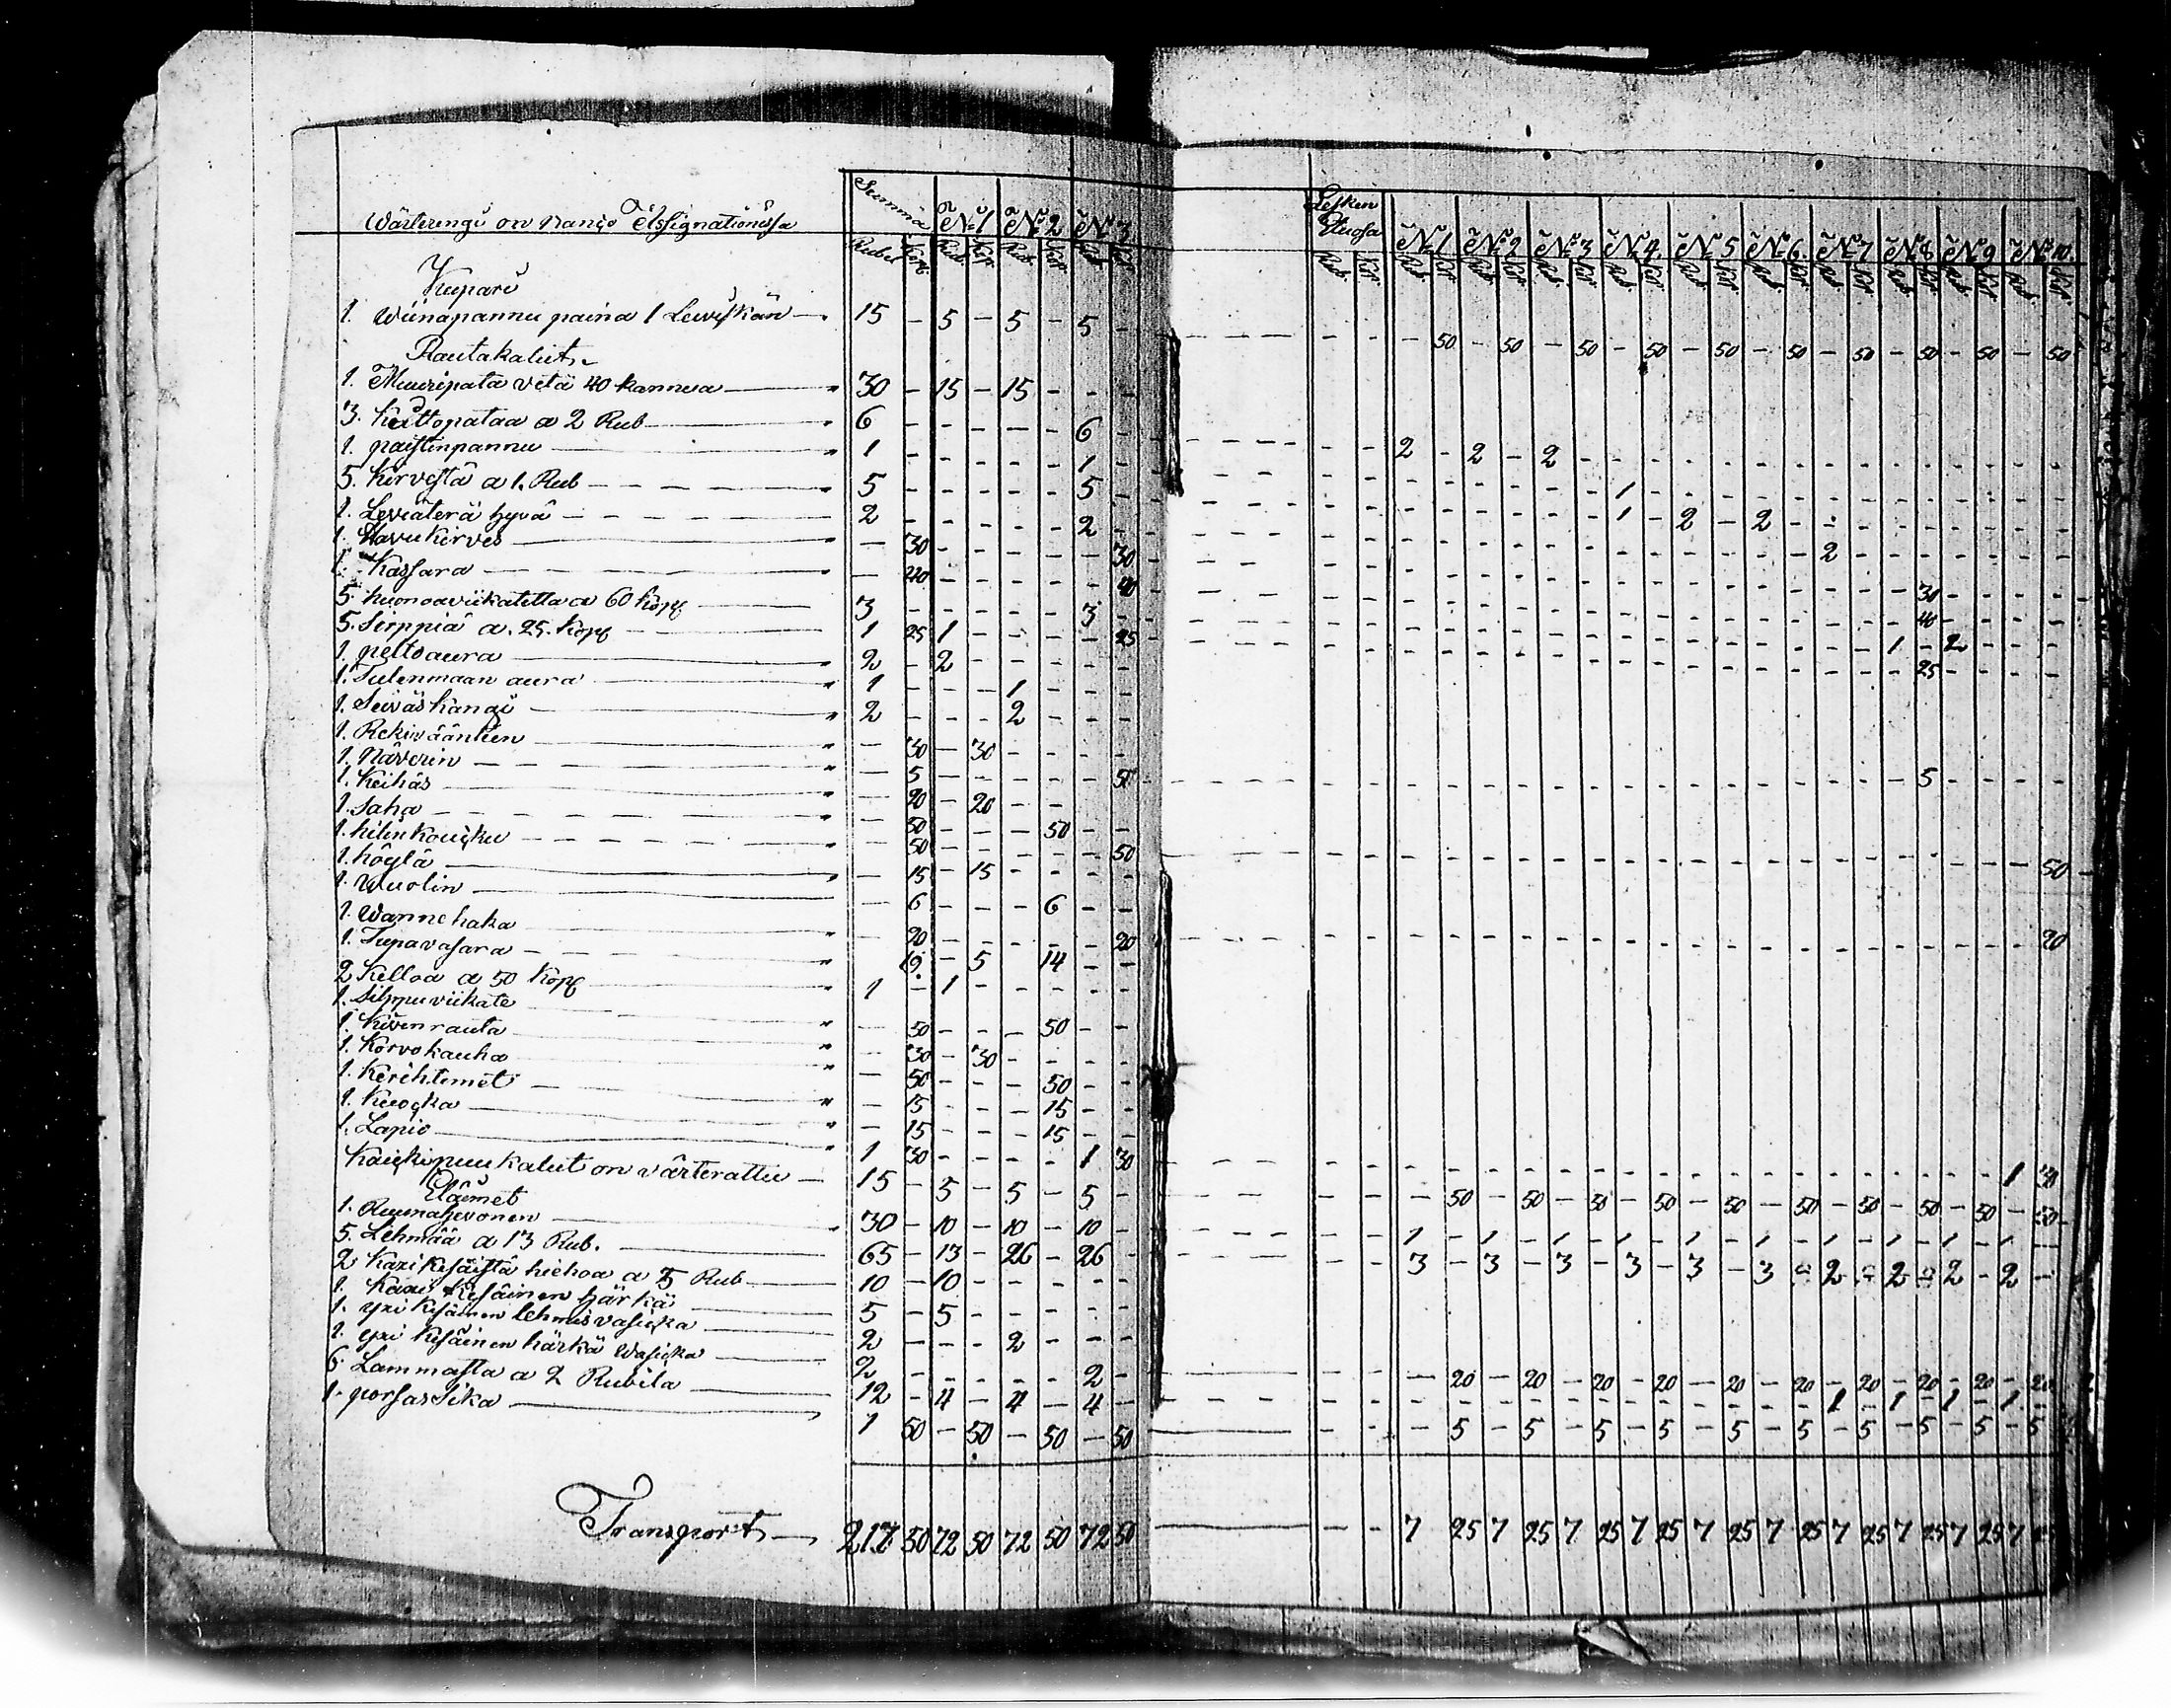 Summa N:1 N:2 N:3 Lesken Etuosa N:1 N:2 N:3 N:4 N:5 N:6 N:7 N:8 N:9 N:10
Wärterengi on Assignationissa Rubel Kop. Rub. Kop. Rub. Kop. Rub. Kop. Rub. Kop. Rub. Kop. Rub. Kop. Rub. Kop. Rub. Kop. Rub. Kop. Rub. Kop. Rub. Kop. Rub. Kop. Rub. Kop. Rub. Kop.
Kupari
1. Wiinapannu paina 1 Leiviskän 15 - 5 - 5 - 5 - - - - 50 - 50 - 50 - 50 - 50 - 50 - 50 - 50 - 50 - 50
Rautakalut
1. Muuripata vetä 40 kannua 30 - 15 - 15 - - -
3. Keittopataa a 2 Rub 6 - - - - - 6 - - - 2 - 2 - 2 - - - - - - - - - - - - - - -
1. paistinpannu 1 - - - - - 1 - - - - - - - - - 1 - - - - - - - - - - - - -
5. Kirvestä a 1. Rub 5 - - - - - 5 - - - - - - - - - 1 - 2 - 2 - - - - - - - - -
1. Leviäterä hyvä 2 - - - - - 2 - - - - - - - - - - - - - - - 2 - - - - - - -
1. Havukirves - 30 - - - - - 30 - - - - - - - - - - - - - - - - - 30 - - - -
1. Kassara - 40 - - - - - 40 - - - - - - - - - - - - - - - - - 40 - - - -
5. huonoa viikatetta a 60 Kop 3 - - - - - 3 - - - - - - - - - - - - - - - - - 1 - 2 - - -
5. Sirppiä a. 25. Kop 1 25 1 - - - - 25 - - - - - - - - - - - - - - - - - 25 - - - -
1. peltoaura 2 - 2 - - - - -
1. Tulenmaan aura 1 - - - 1 - - -
1. Seiväs Kangi 2 - - - 2 - - -
1. Rekiväänteen - 30 - 30 - - - -
1. Näverin - 5 - - - - - 5 - - - - - - - - - - - - - - - - - 5 - - - -
1. Keihäs - 20 - 20 - - - -
1. Saha - 50 - - - 50 - -
1. hilin Koucku - 50 - - - - - 50 - - - - - - - - - - - - - - - - - - - - - 50
1. höylä - 15 - 15 - - - -
1. Wuolin - 6 - - - 6 - -
1. Wannehaka - 20 - - - - - 20 - - - - - - - - - - - - - - - - - - - - - 20
1. Tupavasara 19. - 5 14 - -
2 Kelloa a 50 Kop 1 - 1 - - - - -
1. Silppuviikate - 50 - - - 50 - -
1. Kivenrauta - 30 - 30 - - - -
1. Korvokauha - 50 - - - 50 - -
1. Kerihtemet - 15 - - - 15 - -
1. Kuocka - 15 - - - 15 - -
1. Lapio 1 30 - - - - 1 30 - - - - - - - - - - - - - - - - - - - - 1 30
Kaicki puukalut on värterattu 15 - 5 - 5 - 5 - - - - 50 - 50 - 50 - 50 - 50 - 50 - 50 - 50 - 50 - 50
Eläimet
1. Ruunahevonen 30 - 10 - 10 - 10 - - - 1 - 1 - 1 - 1 - 1 - 1 - 1 - 1 - 1 - 1 -
5. Lehmää a 13 Rub. 65 - 13 - 26 - 26 - - - 3 - 3 - 3 - 3 - 3 - 3 - 2 - 2 - 2 - 2 -
2 Kaxi kesäistä hiehoa a 5 Rub 10 - 10 - - - - -
1. Kaxi kesäinen härkä 5 - 5 - - - - -
1. yxi kesäinen lehmis vasicka 2 - - - 2 - - -
1. yxi kesäinen härkä Wasicka 2 - - - - - 2 - - - - 20 - 20 - 20 - 20 - 20 - 20 - 20 - 20 - 20 - 20
6. Lammasta a 2 Rubila 12 - 4 - 4 - 4 - - - - - - - - - - - - - - - 1 - 1 - 1 - 1 -
1. porsas Sika 1 50 - 50 - 50 - 50 - - - 5 - 5 - 5 - 5 - 5 - 5 - 5 - 5 - 5 - 5
Transport 217 50 72 50 72 50 72 50 - - 7 25 7 25 7 25 7 25 7 25 7 25 7 25 7 25 7 25 7